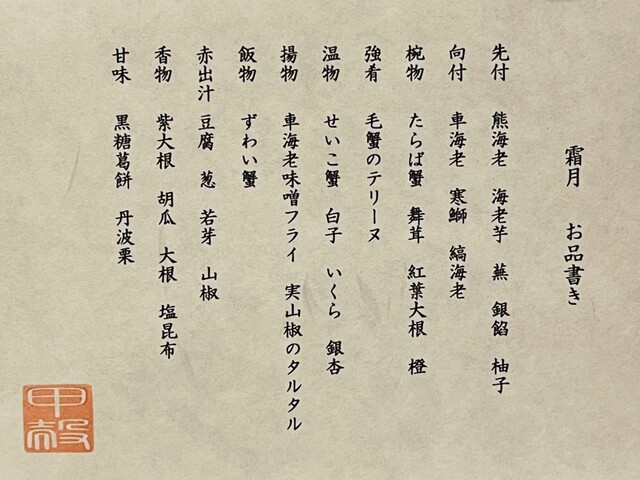 霜月 お品書き
先付 熊海老 海老芋 蕪 銀餡 柚子
向付 車海老 寒鰤 縞海老
椀物 たらば蟹 舞茸 紅葉大根 橙
強肴 毛蟹のテリーヌ
温物 せいこ蟹 白子 いくら 銀杏
揚物 車海老味噌フライ 実山椒のタルタル
飯物 ずわい蟹
赤出汁 豆腐 葱 若芽 山椒
香物 紫大根 胡瓜 大根 塩昆布
甘味 黒糖葛餅 丹波栗
甲殻